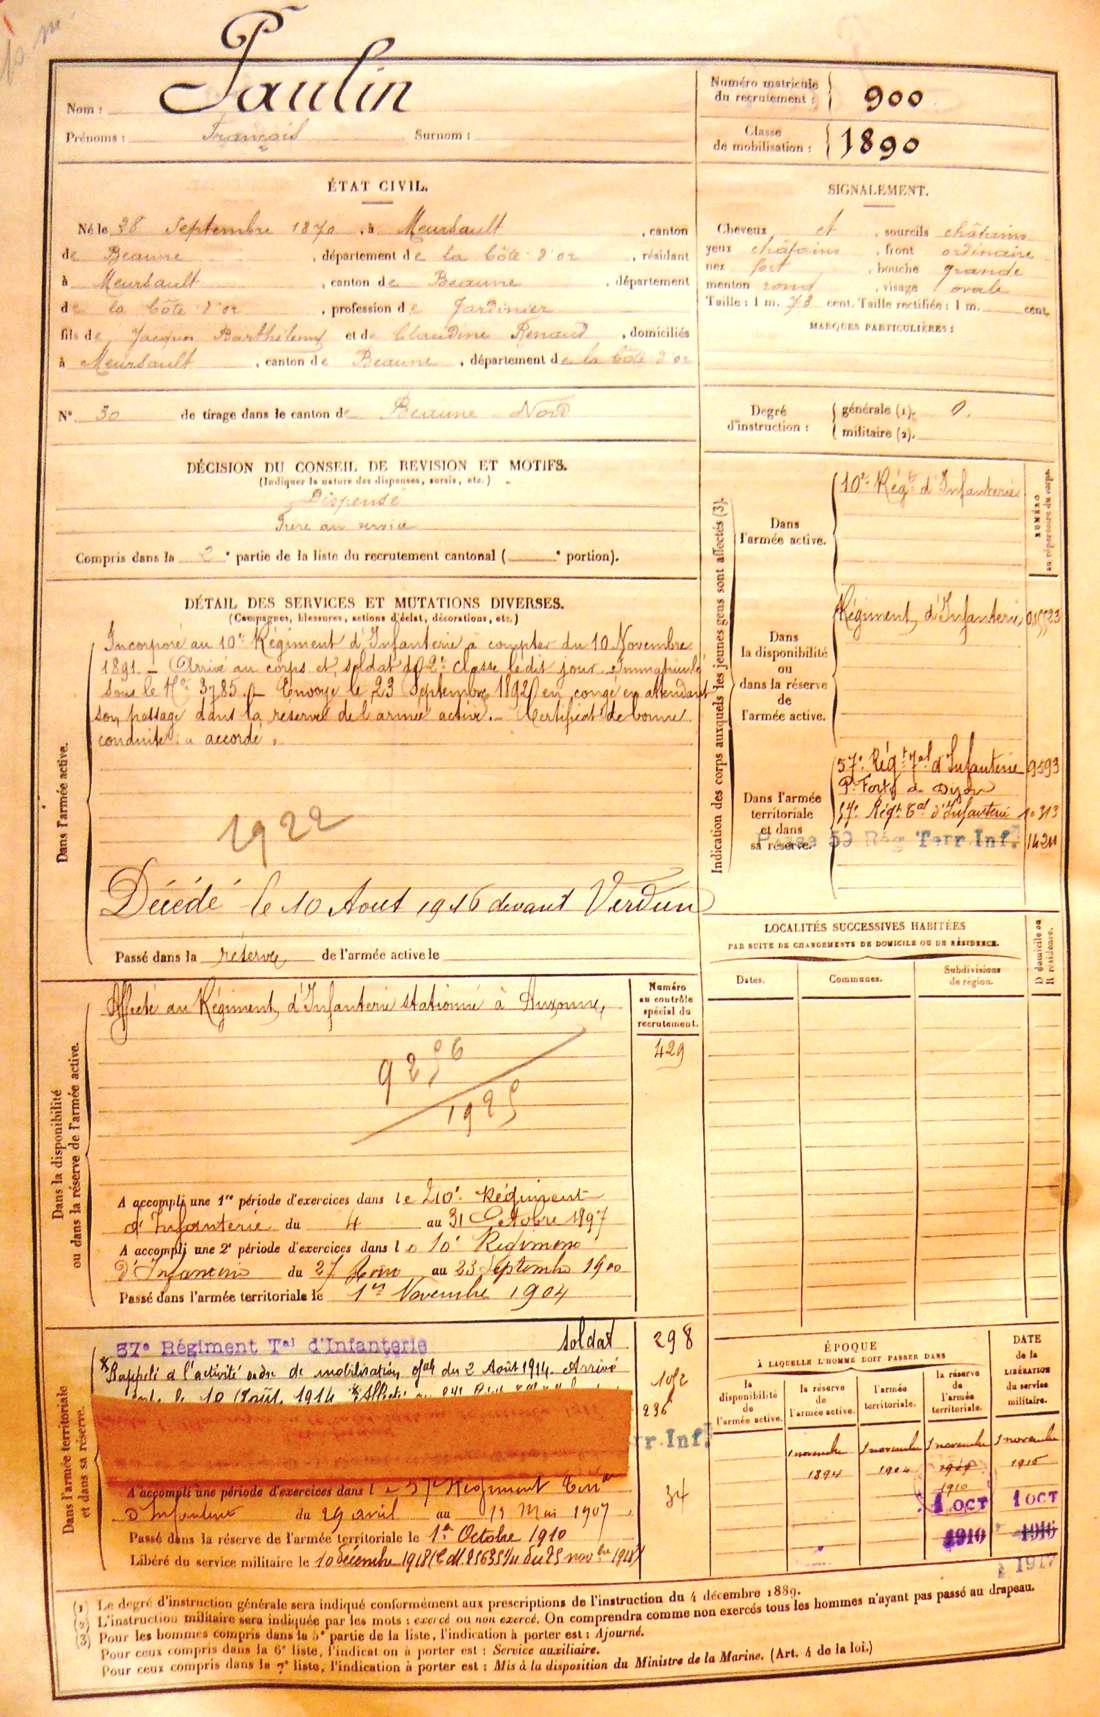 Paulin
Nom :
Prénoms : Français Surnom :
Numéro matricule du recrutement : 900
Classe de mobilisation : 1890
ÉTAT CIVIL.
Né le 28 Septembre 1870, à Meursault, canton
de Beaune, département de la Côte d'or, résidant
à Meursault, canton de Beaune, département
de la Côte d'or, profession de Jardinier
fils de Jacques Barthélemy et de Claudine Renaud, domiciliés
à Meursault, canton de Beaune, département de la Côte d'or
N° 30 de tirage dans le canton de Beaune Nord
SIGNALEMENT.
Cheveux et, sourcils châtains
yeux châtains, front ordinaire
nez fort, bouche grande
menton rond, visage ovale
Taille : 1 m. 73 cent. Taille rectifiée : 1 m. cent.
MARQUES PARTICULIÈRES :
Degré d'instruction : générale (1).
militaire (2).
DÉCISION DU CONSEIL DE REVISION ET MOTIFS.
(Indiquer la nature des dispenses, sursis, etc.)
Dispensé
Frère au service
Compris dans la 2e partie de la liste du recrutement cantonal ( e portion).
DÉTAIL DES SERVICES ET MUTATIONS DIVERSES.
(Campagnes, blessures, actions d'éclat, décorations, etc.)
Dans l'armée active.
Incorporé au 10e Régiment d'Infanterie à compter du 10 Novembre
1891. – Arrivé au corps et soldat de 2e classe le dit jour. Immatriculé
sous le No 3785. – Envoyé le 23 Septembre 1892 en congé en attendant
son passage dans la réserve de l'armée active. – Certificat de bonne
conduite : accordé.
1922
Décédé le 10 Aout 1916 devant Verdun
Passé dans la réserve de l'armée active le
Indication des corps auxquels les jeunes gens sont affectés (3).
NUMÉRO au répertoire du corps.
Dans l'armée active.
10e Régt d'Infanterie
Dans la disponibilité ou dans la réserve de l'armée active.
Régiment d'Infanterie
Dans l'armée territoriale et dans sa réserve.
57e Régt Tal d'Infanterie 9593
Pce Forte de Dijon
57e Régt Tal d'Infanterie 10313
Passé 59 Rég Terr Inf.
LOCALITÉS SUCCESSIVES HABITÉES
PAR SUITE DE CHANGEMENTS DE DOMICILE OU DE RÉSIDENCE.
Dates. Communes. Subdivisions de région.
D domicile ou R résidence.
Dans la disponibilité ou dans la réserve de l'armée active.
Affecté au Régiment d'Infanterie stationné à Auxonne,
Numéro au contrôle spécial du recrutement.
429
9256
1925
A accompli une 1re période d'exercices dans le 210e Régiment
d'Infanterie du 4 au 31 Octobre 1897
A accompli une 2e période d'exercices dans le 10e Régiment
d'Infanterie du 27 Aout au 23 Septembre 1900
Passé dans l'armée territoriale le 1er Novembre 1904
Dans l'armée territoriale et dans sa réserve.
57e Régiment Tal d'Infanterie soldat 298
Rappelé à l'activité ordre de mobilisation gale du 2 Août 1914. Arrivé
le 10 Août 1914
1052
236
rr Inf.
A accompli une période d'exercices dans le 57e Régiment Terr 34
d'Infanterie du 29 avril au 12 Mai 1907
Passé dans la réserve de l'armée territoriale le 1er Octobre 1910
Libéré du service militaire le 10 décembre 1918
ÉPOQUE
À LAQUELLE L'HOMME DOIT PASSER DANS
la disponibilité de l'armée active.
la réserve de l'armée active.
l'armée territoriale.
la réserve de l'armée territoriale.
DATE de la LIBÉRATION du service militaire.
1 novembre 1 novembre 1 novembre 1 novembre
1894 1904 1909 1915
1910
1 OCT 1 OCT
1910 1916
1917
(1) Le degré d'instruction générale sera indiqué conformément aux prescriptions de l'instruction du 4 décembre 1889.
(2) L'instruction militaire sera indiquée par les mots : exercé ou non exercé. On comprendra comme non exercés tous les hommes n'ayant pas passé au drapeau.
(3) Pour les hommes compris dans la 5e partie de la liste, l'indication à porter est : Ajourné.
Pour ceux compris dans la 6e liste, l'indication à porter est : Service auxiliaire.
Pour ceux compris dans la 7e liste, l'indication à porter est : Mis à la disposition du Ministre de la Marine. (Art. 4 de la loi.)